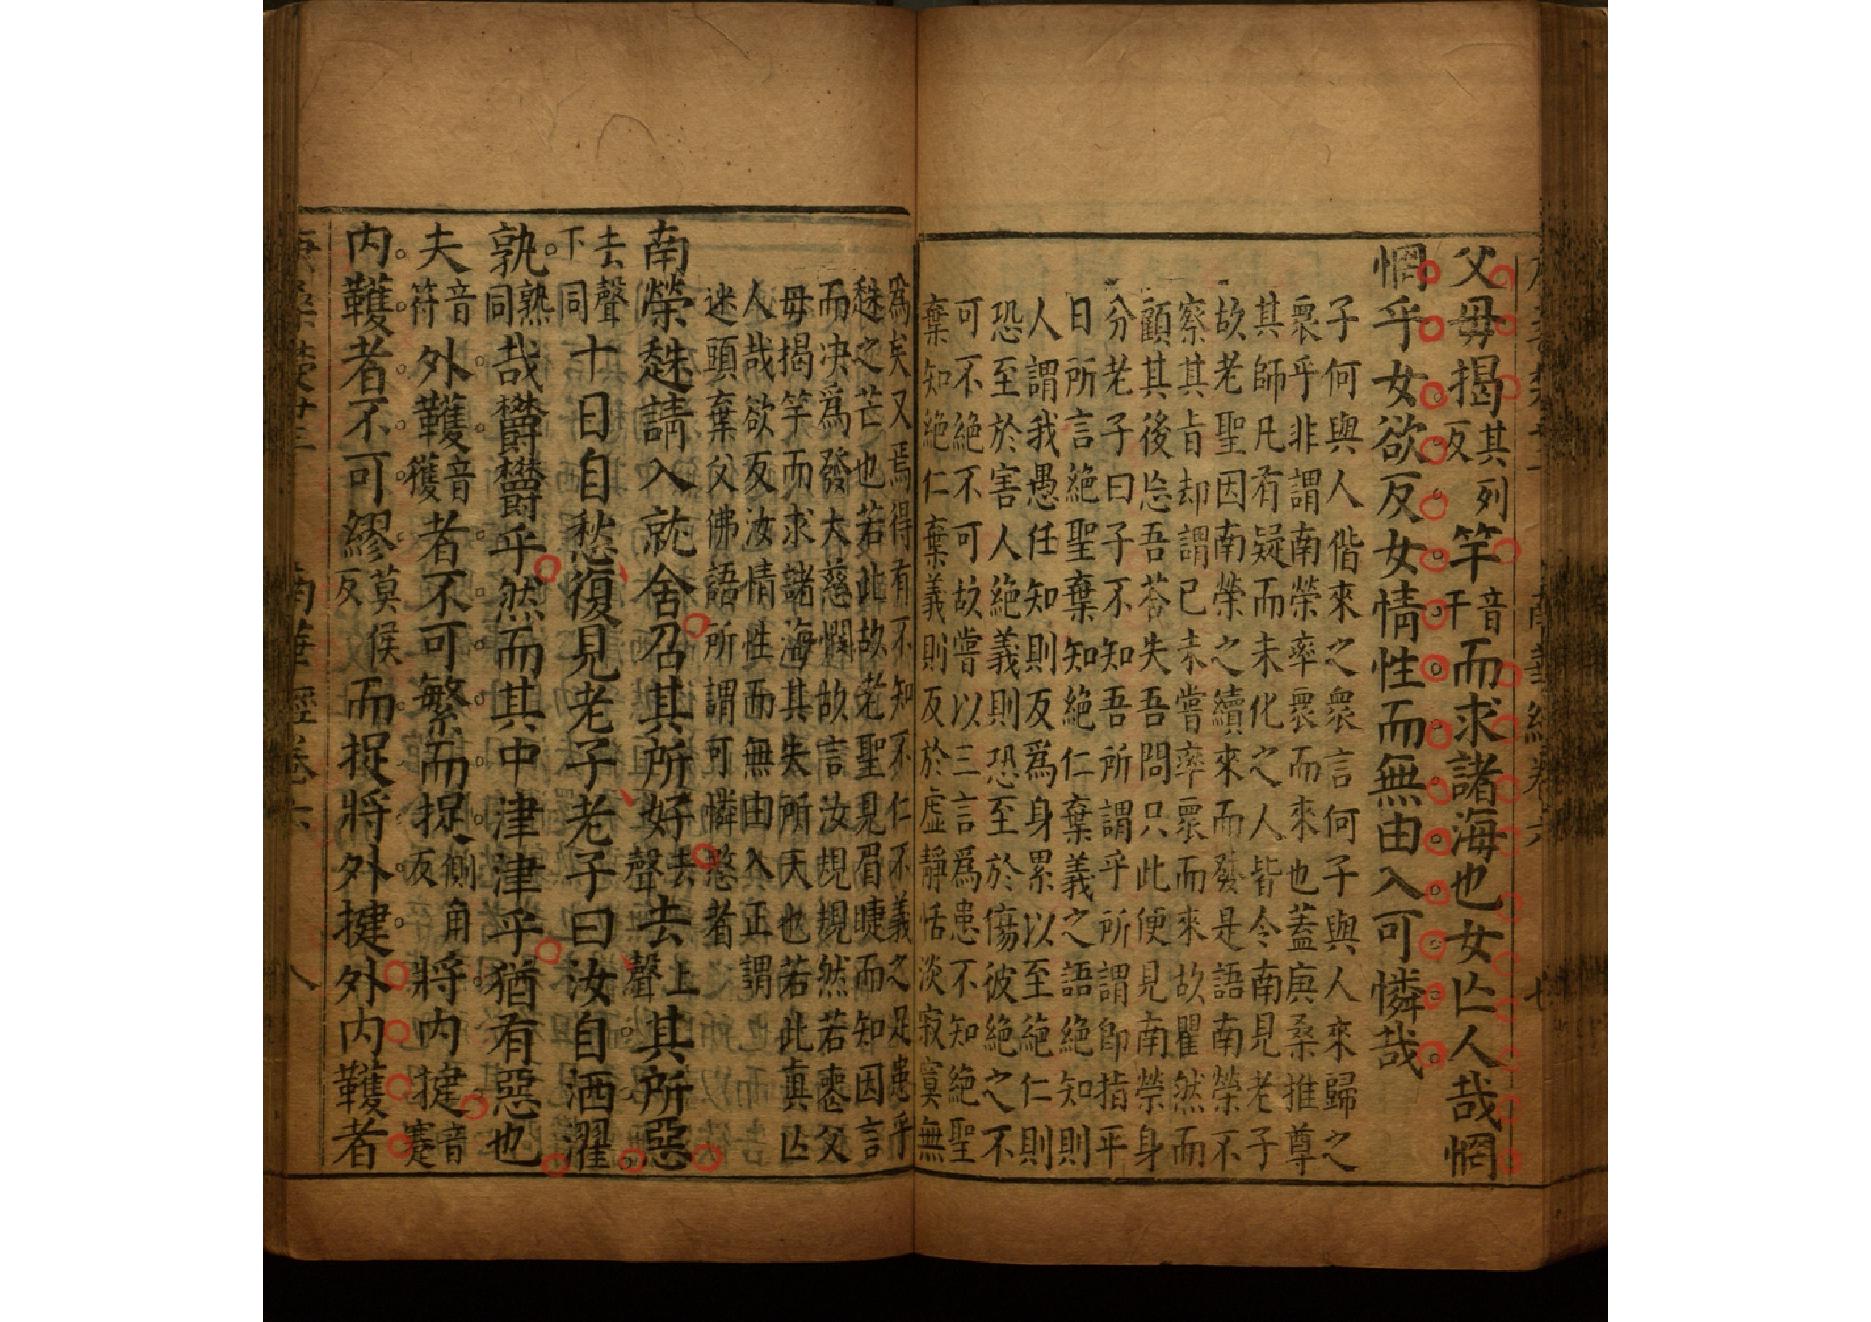 父母揭其列反竿音干而求諸海也女亾人哉惘
惘乎女欲反女情性而無由入可憐哉
子何與人偕來之衆言何子與人來歸之
衆乎非謂南榮率衆而來也蓋庚桑推尊
其師凡有疑而未化之人皆令南見老子
故老聖因南榮之續來而發是語南榮不
察其旨却謂已未嘗率衆而來故瞿然而
顧其後忘吾答失吾問只此便見南榮身
分老子曰子不知吾所謂乎所謂即指平
日所言絕聖棄知絕仁棄義之語絕知則
人謂我愚任知則反爲身累以至絕仁則
恐至於害人絕義則恐至於傷彼絕之不
可不絕不可故嘗以三言爲患不知絕聖
棄知絕仁棄義則反於虛靜恬淡寂寞無
爲矣又焉得有不知不仁不義之足患乎
趎之芒也若此故老聖見眉睫而知因言
而决爲發大慈憫故言汝規規然若喪父
母揭竿而求諸海其失所天也若此真亾
人哉欲反汝情性而無由入正謂
迷頭棄父佛語所謂可憐愍者
南榮趎請入就舍召其所好去聲去上聲其所惡
去聲下同十日自愁復見老子老子曰汝自洒濯
孰熟同哉鬱鬱乎然而其中津津乎猶有惡也
夫音符外韄音獲者不可繁而捉側角反將内揵音蹇
内韄者不可繆莫侯反而捉將外揵外内韄者
南華經卷六